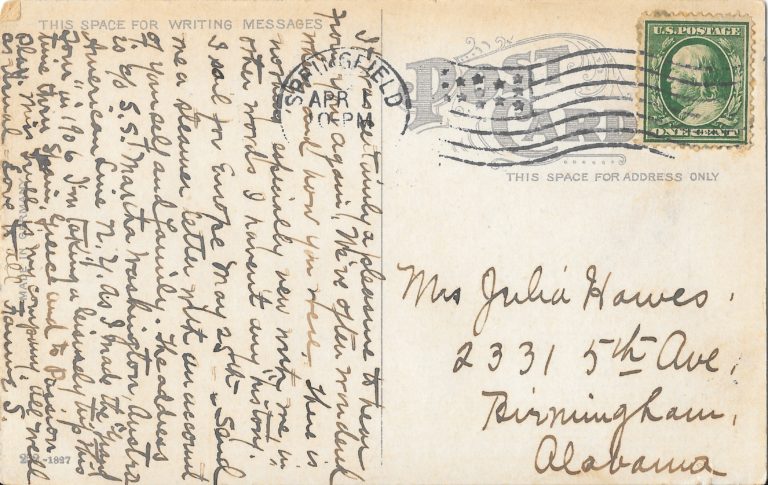 THIS SPACE FOR WRITING MESSAGES
It was certainly a pleasure to hear
from you again! We've often wondered
and how you were. There is
nothing especially new with me, in
other words I haven't any history.
I sail for Europe May 25th - Send
me a steamer letter with an account
of yourself and family. The address
is c/o S.S. Martha Washington, Austro
American Line N.Y. As I made the
Tour in 1906 I'm taking a leisurely trip this
time thru Spain, Greece and to Passion
Play. Miss is my company. All well
as usual. Love to all
MADE IN GERMANY
-1827
SPRINGFIELD
APR
PM
U.S. POSTAGE
ONE CENT
POST
CARD
THIS SPACE FOR ADDRESS ONLY
Mrs Julia Hawes.
2331 5th Ave,
Birmingham,
Alabama